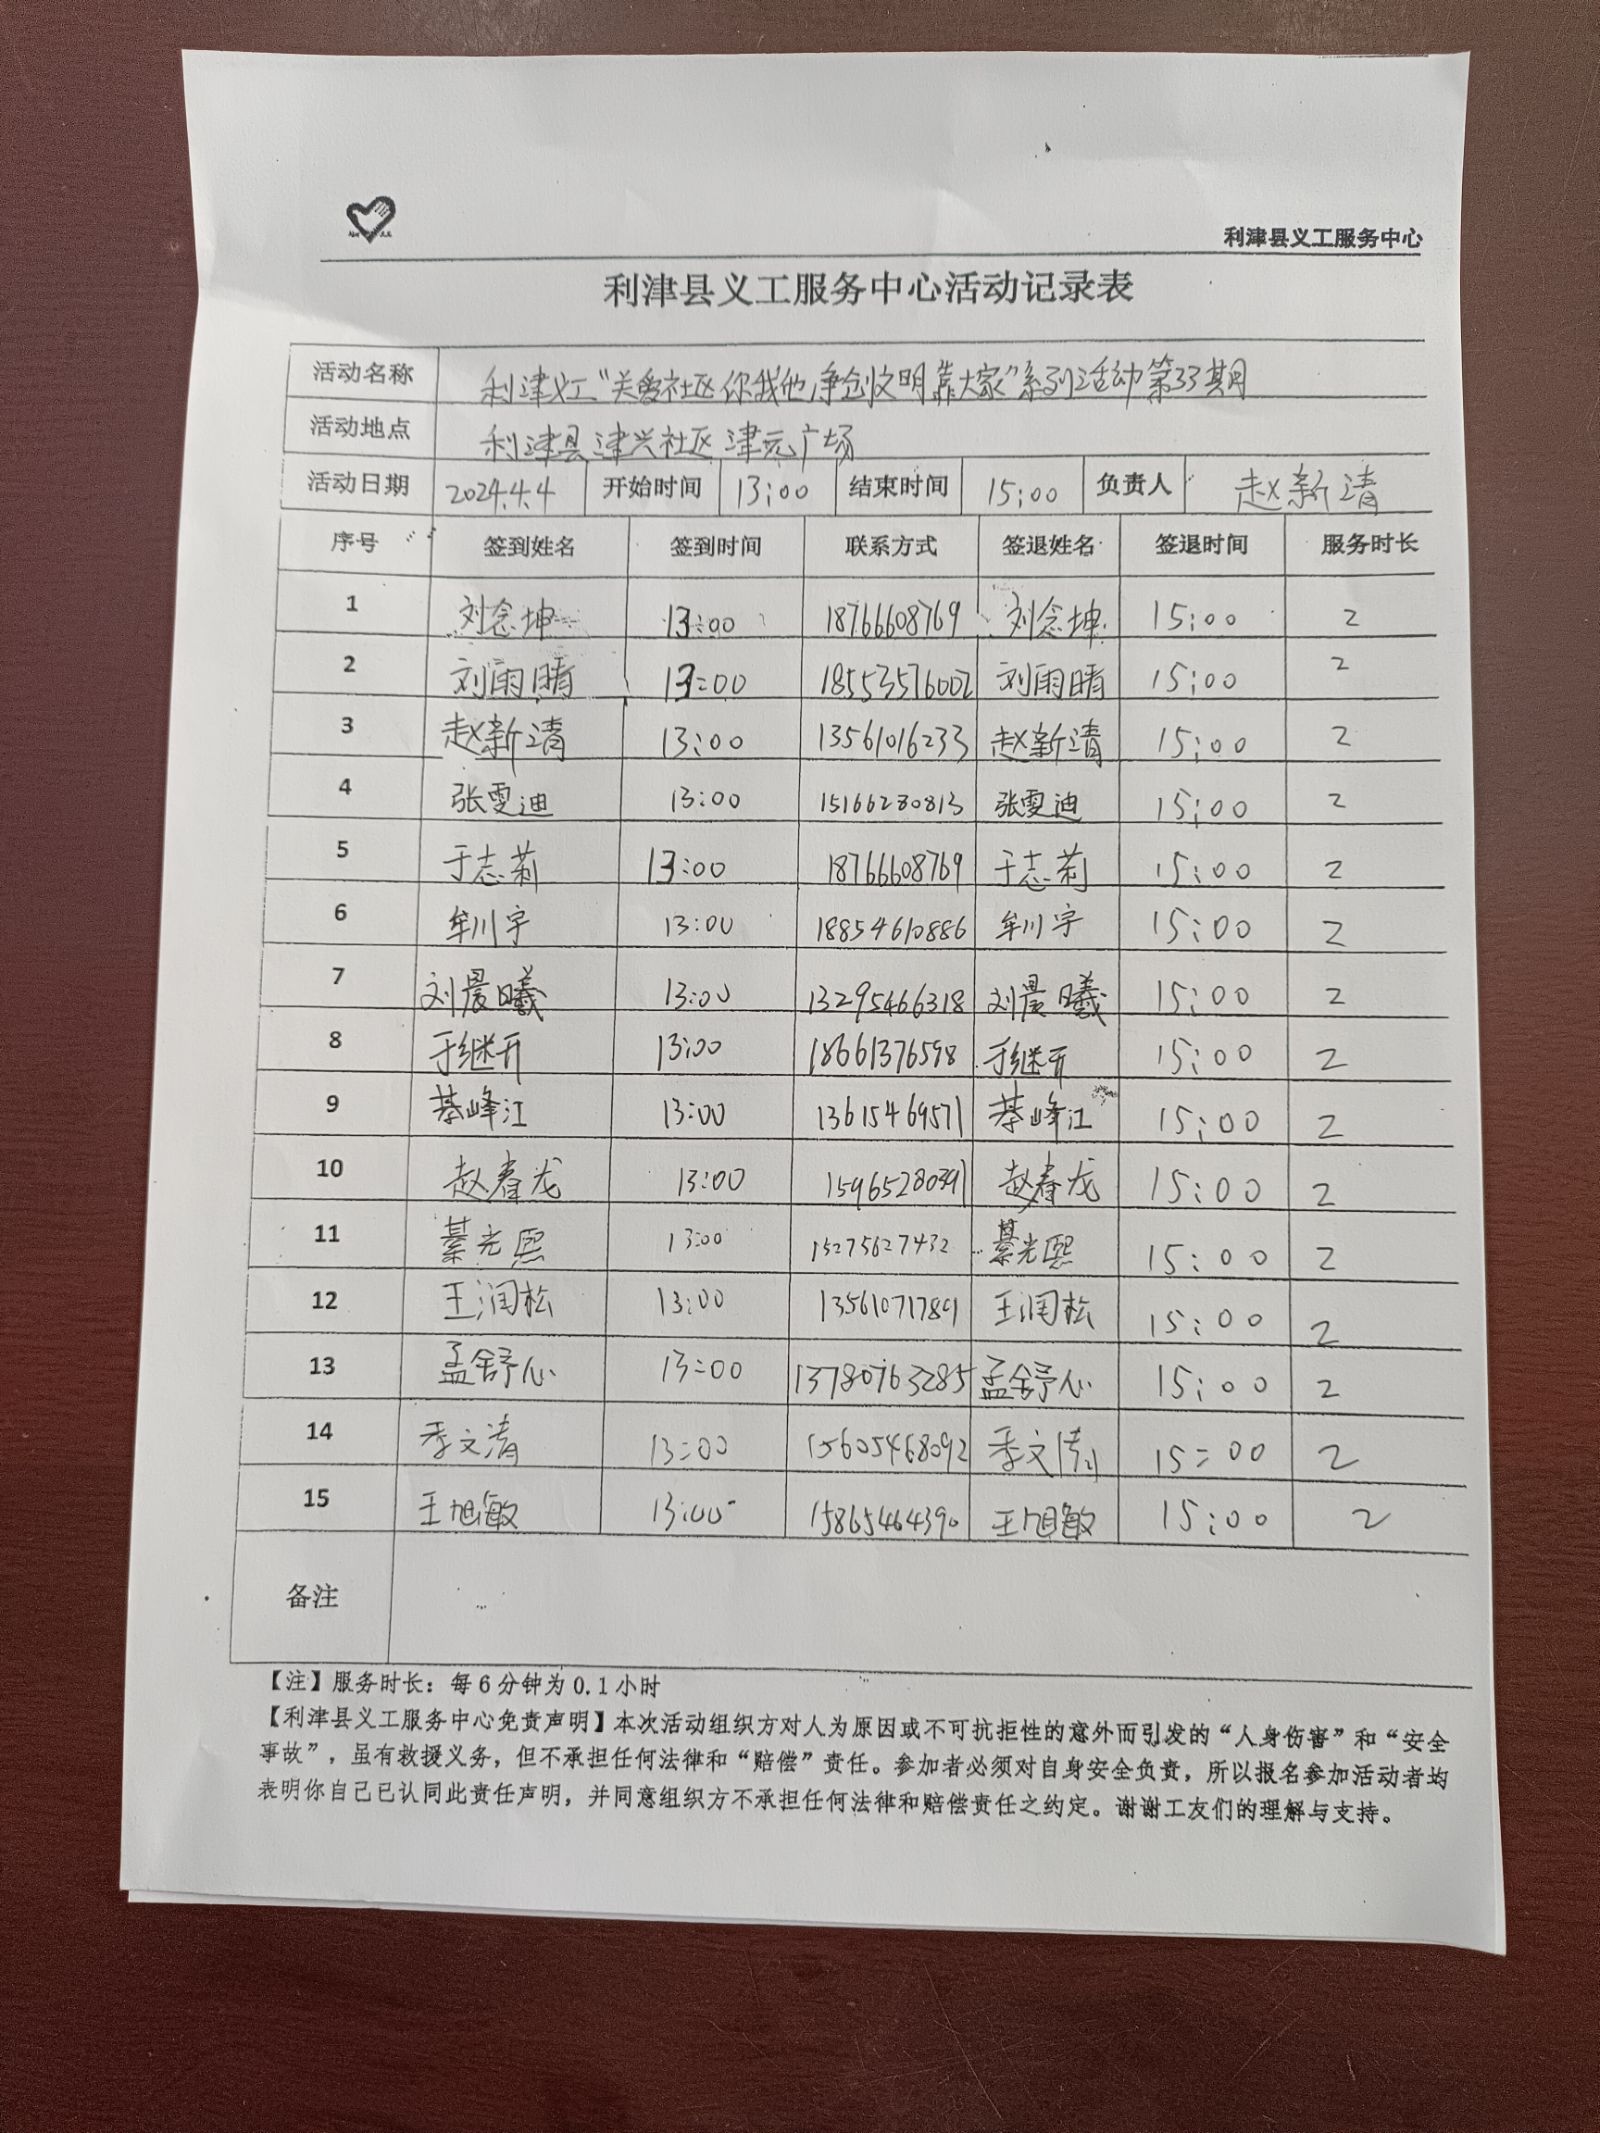 利津县义工服务中心
利津县义工服务中心活动记录表
活动名称 利津义工“关爱社区你我他,争创文明靠大家”系列活动第33期
活动地点 利津县津兴社区津元广场
活动日期 2024.4.4 开始时间 13:00 结束时间 15:00 负责人 赵新清
序号 签到姓名 签到时间 联系方式 签退姓名 签退时间 服务时长
1 刘念坤 13:00 18766608769 刘念坤 15:00 2
2 刘雨晴 13:00 18553576002 刘雨晴 15:00 2
3 赵新清 13:00 13561016233 赵新清 15:00 2
4 张雯迪 13:00 15166280813 张雯迪 15:00 2
5 于志莉 13:00 18766608769 于志莉 15:00 2
6 牟川宇 13:00 18854610886 牟川宇 15:00 2
7 刘晨曦 13:00 13295466318 刘晨曦 15:00 2
8 于继开 13:00 18661376598 于继开 15:00 2
9 綦峰江 13:00 13615469571 綦峰江 15:00 2
10 赵春龙 13:00 15965280391 赵春龙 15:00 2
11 綦光熙 13:00 15275627432 綦光熙 15:00 2
12 王润松 13:00 13561071789 王润松 15:00 2
13 孟舒心 13:00 13780763285 孟舒心 15:00 2
14 季文清 13:00 15605468092 季文清 15:00 2
15 王旭敏 13:00 15865464390 王旭敏 15:00 2
备注
【注】服务时长：每6分钟为0.1小时
【利津县义工服务中心免责声明】本次活动组织方对人为原因或不可抗拒性的意外而引发的“人身伤害”和“安全
事故”，虽有救援义务，但不承担任何法律和“赔偿”责任。参加者必须对自身安全负责，所以报名参加活动者均
表明你自己已认同此责任声明，并同意组织方不承担任何法律和赔偿责任之约定。谢谢工友们的理解与支持。